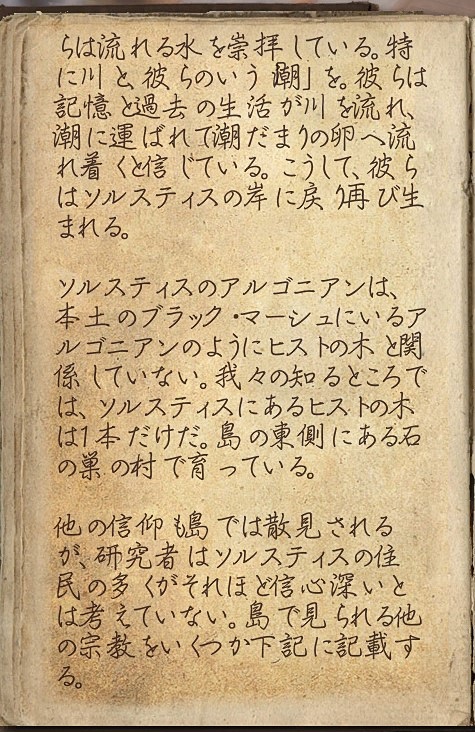 らは流れる水を崇拝している。特
に川と、彼らのいう「潮」を。彼らは
記憶と過去の生活が川を流れ、
潮に運ばれて潮だまりの卵へ流
れ着くと信じている。こうして、彼ら
はソルスティスの岸に戻り再び生
まれる。
ソルスティスのアルゴニアンは、
本土のブラック・マーシュにいるア
ルゴニアンのようにヒストの木と関
係していない。我々の知るところで
は、ソルスティスにあるヒストの木
は1本だけだ。島の東側にある石
の巣の村で育っている。
他の信仰も島では散見される
が、研究者はソルスティスの住
民の多くがそれほど信心深いと
は考えていない。島で見られる他
の宗教をいくつか下記に記載す
る。